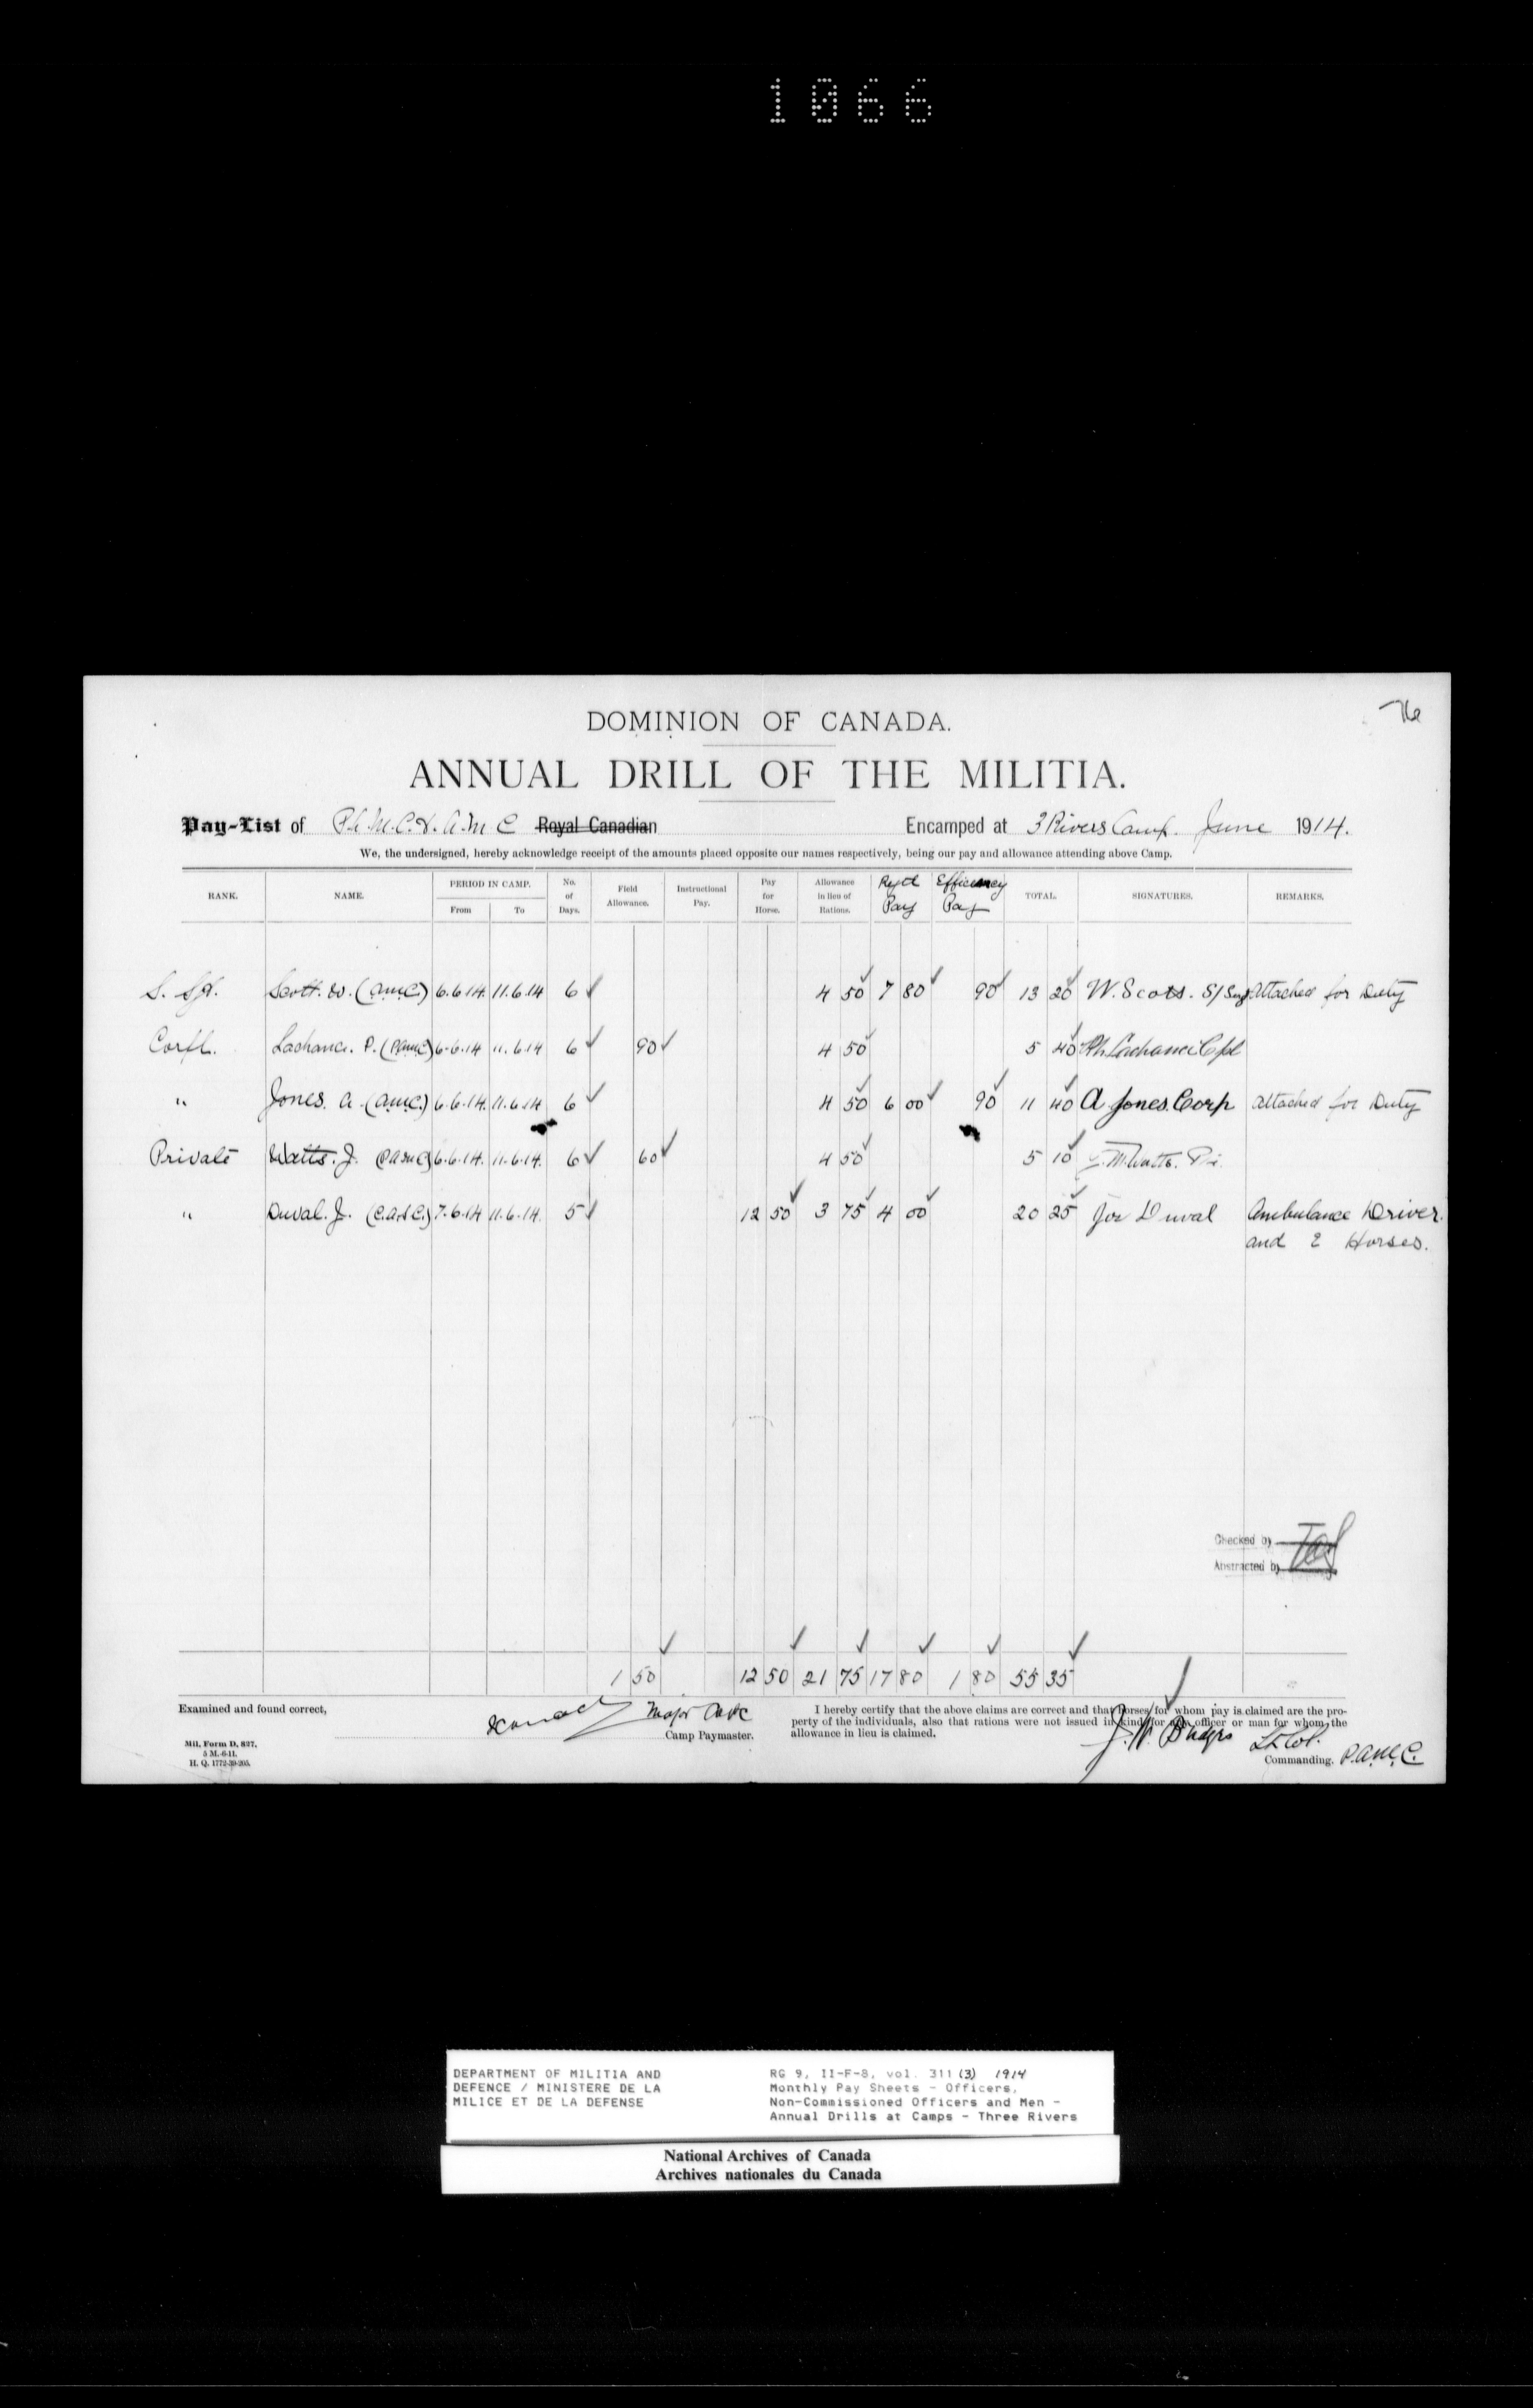 1066
76
DOMINION OF CANADA.
ANNUAL DRILL OF THE MILITIA.
Pay-List of P.A.M.C. & A.M.C Royal Canadian Encamped at 3 Rivers Camp. June 1914.
We, the undersigned, hereby acknowledge receipt of the amounts placed opposite our names respectively, being our pay and allowance attending above Camp.
RANK. NAME. PERIOD IN CAMP. From To No. of Days. Field Allowance. Instructional Pay. Pay for Horse. Allowance in lieu of Rations. Regtl Pay Efficiency Pay TOTAL. SIGNATURES. REMARKS.
S. Sgt. Scott. W. (A.M.C.) 6.6.14. 11.6.14 6 4 50 7 80 90 13 20 W. Scott. S/Sergt Attached for Duty
Corpl. Lachance. P. (PAMC) 6.6.14 11.6.14 6 90 4 50 5 40 Ph Lachance Cpl
" Jones. A. (A.M.C.) 6.6.14. 11.6.14 6 4 50 6 00 90 11 40 A Jones. Corp Attached for Duty
Private Watts. J. (PAMC) 6.6.14. 11.6.14. 6 60 4 50 5 10 Watts. Pte.
" Duval. J. (C.A.S.C.) 7.6.14 11.6.14. 5 12 50 3 75 4 00 20 25 Jos Duval Ambulance Driver
and 2 Horses.
Checked by
Abstracted by
1 50 12 50 21 75 17 80 1 80 55 35
Examined and found correct,
Major
Camp Paymaster.
I hereby certify that the above claims are correct and that horses for whom pay is claimed are the property of the individuals, also that rations were not issued in kind for any officer or man for whom the allowance in lieu is claimed.
Lt Col.
Commanding. P.A.M.C.
Mil. Form D. 827.
5 M.-6-11.
H. Q. 1772-39-205.
DEPARTMENT OF MILITIA AND
DEFENCE / MINISTERE DE LA
MILICE ET DE LA DEFENSE
RG 9, II-F-8, vol. 311 (3) 1914
Monthly Pay Sheets - Officers,
Non-Commissioned Officers and Men -
Annual Drills at Camps - Three Rivers
National Archives of Canada
Archives nationales du Canada